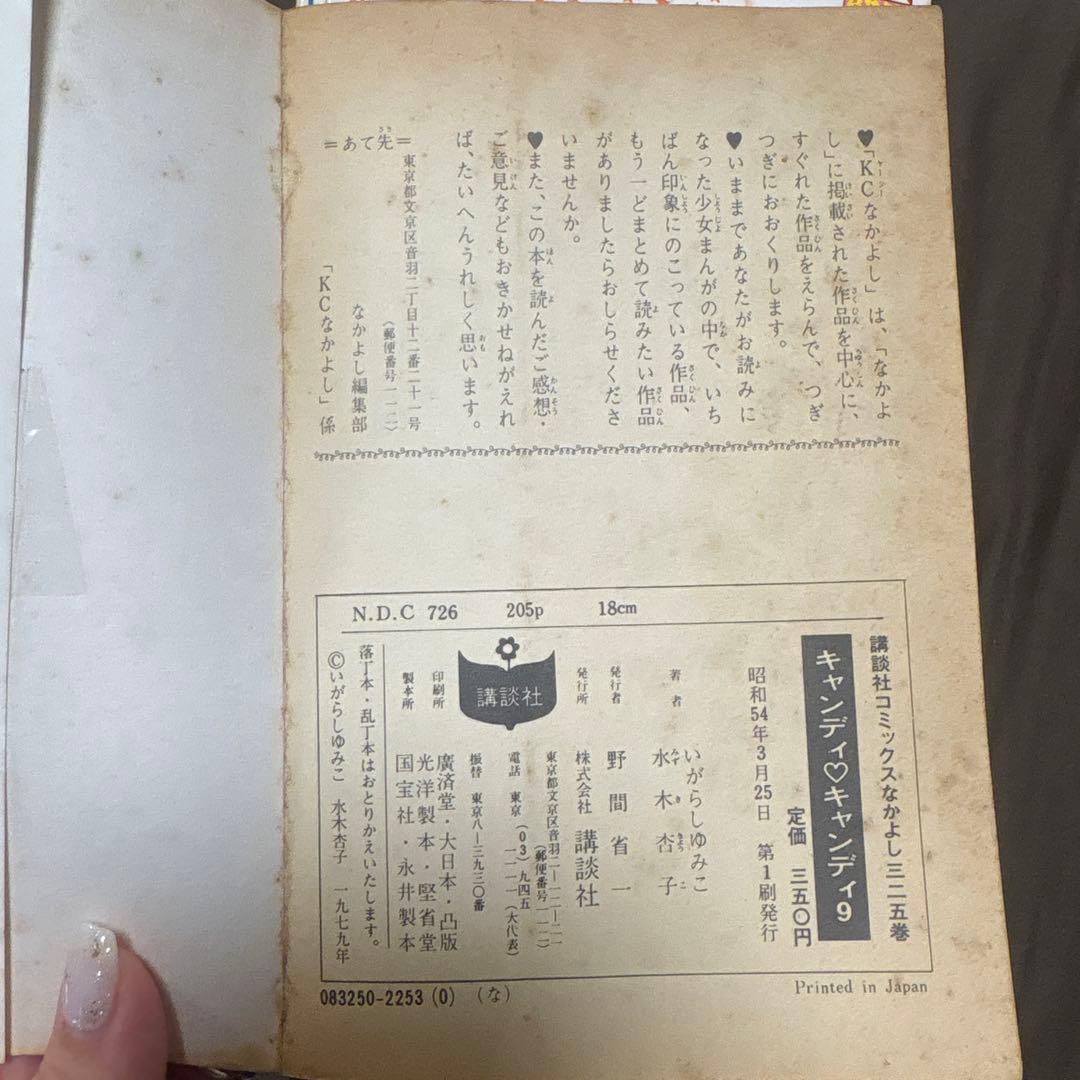 ♥「KCなかよし」は、「なかよ
し」に掲載された作品を中心に、
すぐれた作品をえらんで、つぎ
つぎにおおくりします。
♥いままであなたがお読みに
なった少女まんがの中で、いち
ばん印象にのこっている作品、
もう一どまとめて読みたい作品
がありましたらおしらせくださ
いませんか。
♥また、この本を読んだご感想・
ご意見などもおきかせねがえれ
ば、たいへんうれしく思います。
=あて先=
東京都文京区音羽二丁目十二番二十一号
(郵便番号一一二)
なかよし編集部
「KCなかよし」係
N.D.C 726 205p 18cm
講談社コミックスなかよし三二五巻
キャンディ♡キャンディ9
定価 三五〇円
昭和54年3月25日 第1刷発行
著者 いがらしゆみこ
水木杏子
発行者 野間省一
発行所 株式会社 講談社
東京都文京区音羽二―一二―二一
(郵便番号一一二)
電話 東京(03)九四五
一一一一(大代表)
振替 東京八―三九三〇番
講談社
印刷所 廣済堂・大日本・凸版
製本所 光洋製本・堅省堂
国宝社・永井製本
落丁本・乱丁本はおとりかえいたします。
©いがらしゆみこ 水木杏子 一九七九年
083250-2253(0) (な)
Printed in Japan